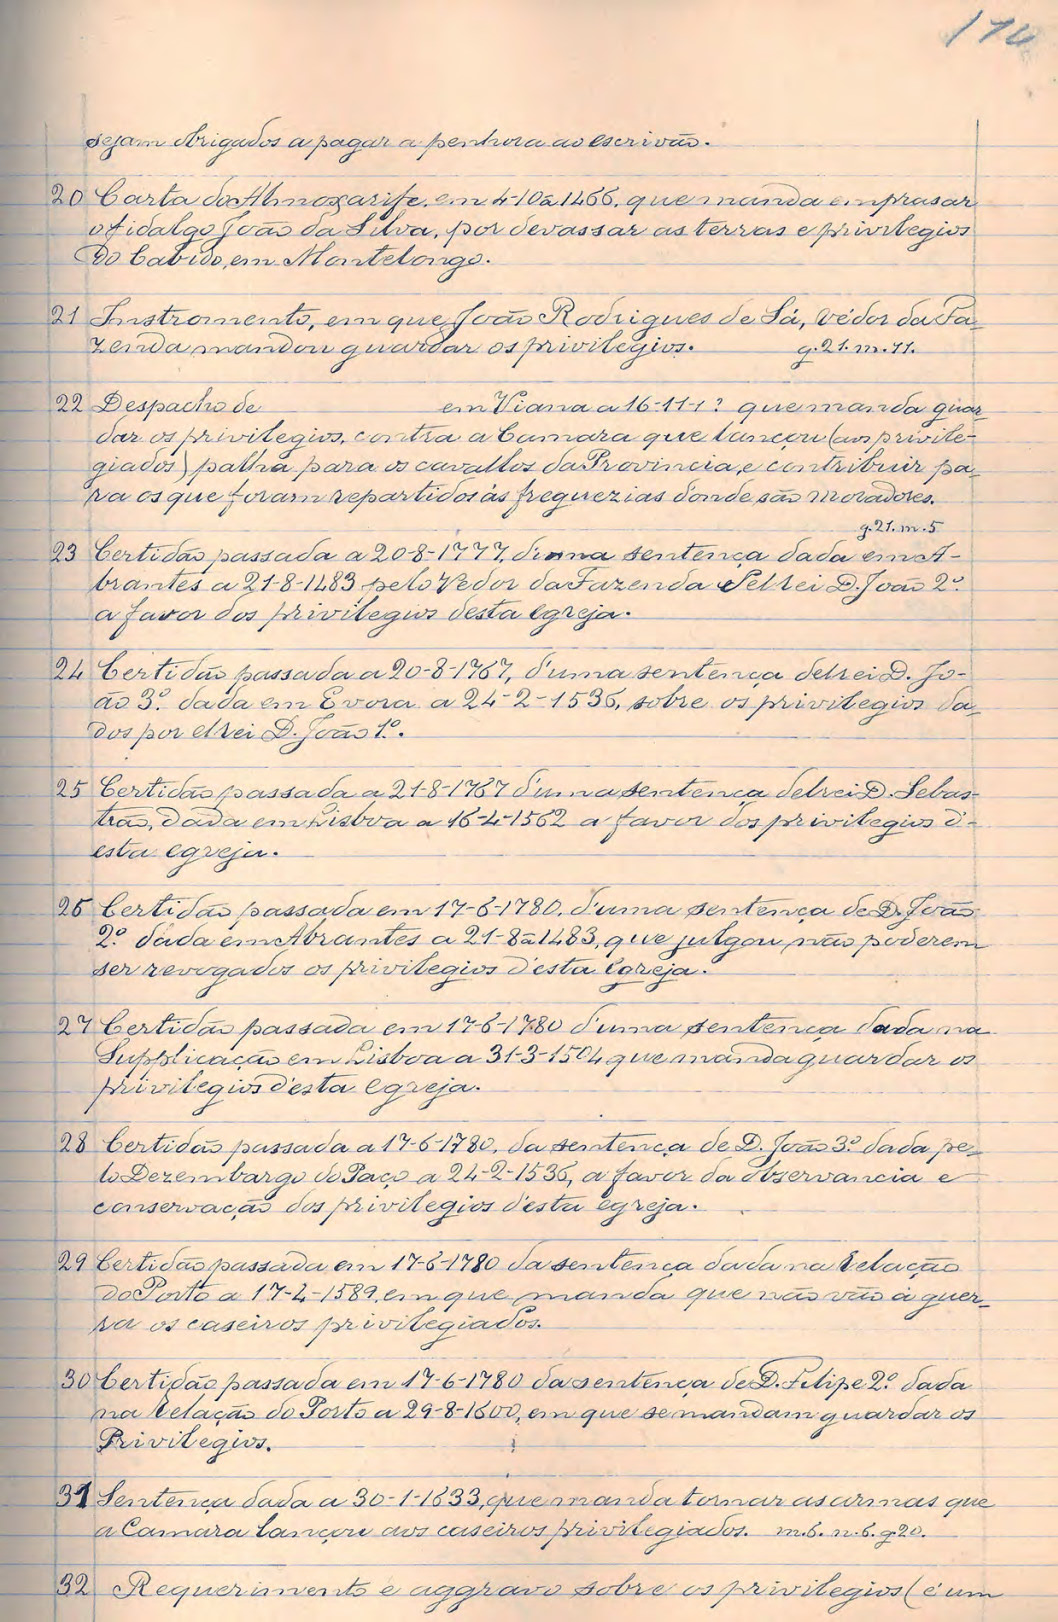 174
sejam obrigados a pagar a penhora ao escrivão.
20 Carta do Almoxarife, em 4-10a-1466, que manda emprasar
o fidalgo João da Silva, por devassar as terras e privilegios
do Cabido, em Montelongo.
21 Instromento, em que João Rodrigues de Sá, Védor da Fa-
zenda mandou guardar os privilegios. g. 21. m. 11.
22 Despacho de em Viana a 16-11-1? que manda guar-
dar os privilegios, contra a Camara que lançou (aos privile-
giados) palha para os cavallos da Provincia, e contribuir pa-
ra os que foram repartidos ás freguezias donde são moradores.
g. 21. m. 5
23 Certidão passada a 20-8-1777, d'uma sentença dada em A-
brantes a 21-8-1483 pelo Vedor da Fazenda d'elrei D. João 2º
a favor dos privilegios desta egreja.
24 Certidão passada a 20-8-1767, d'uma sentença delrei D. Jo-
ão 3º dada em Evora a 24-2-1536, sobre os privilegios da-
dos por elrei D. João 1º.
25 Certidão passada a 21-8-1767 d'uma sentença delrei D. Sebas-
tião, dada em Lisboa a 16-4-1562 a favor dos privilegios d'-
esta egreja.
26 Certidão passada em 17-6-1780, d'uma sentença de D. João
2º dada em Abrantes a 21-8a-1483, que julgou não poderem
ser revogados os privilegios d'esta egreja.
27 Certidão passada em 17-6-1780 d'uma sentença dada na
Supplicação em Lisboa a 31-3-1504 que manda guardar os
privilegios d'esta egreja.
28 Certidão passada a 17-6-1780, da sentença de D. João 3º dada pe-
lo Dezembargo do Paço a 24-2-1536, a favor da observancia e
conservação dos privilegios d'esta egreja.
29 Certidão passada em 17-6-1780 da sentença dada na Relação
do Porto a 17-4-1589, em que manda que não vão á guer-
ra os caseiros privilegiados.
30 Certidão passada em 17-6-1780 da sentença de D. Filipe 2º dada
na Relação do Porto a 29-8-1600, em que se mandam guardar os
Privilegios.
31 Sentença dada a 30-1-1633, que manda tornar as armas que
a Camara lançou aos caseiros privilegiados. m. 6. n. 6. g. 20.
32 Requerimento e aggravo sobre os privilegios (é um